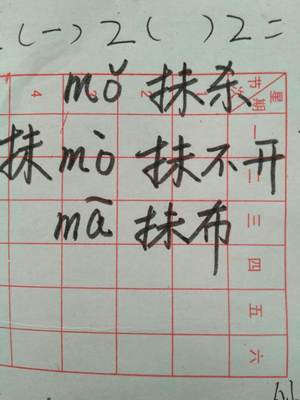 (一) 2 ( ) 2 =
mǒ 抹杀
抹 mò 抹不开
mā 抹布
星期
节
一
二
三
四
五
六
4